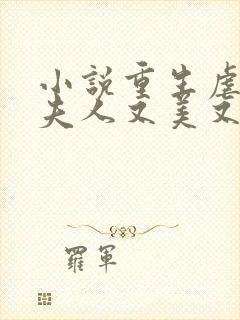 小說重生虐
夫人又美又
羅軍